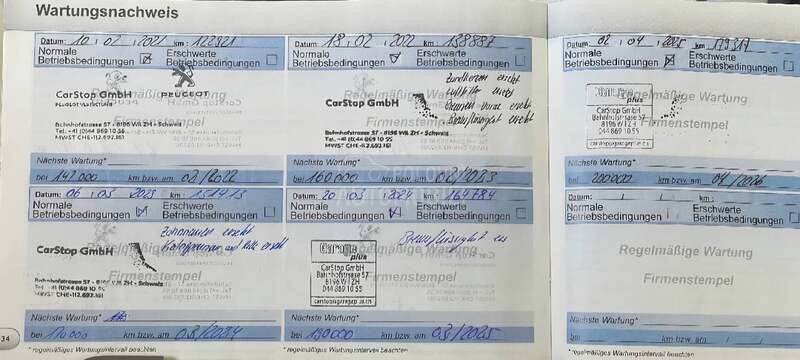 Wartungsnachweis
Datum: 10 . 02 . 2021 km: 122921
Normale Betriebsbedingungen
Erschwerte Betriebsbedingungen
PEUGEOT
CarStop GmbH
Regelmäßige Wartung
Firmenstempel
Bahnhofstrasse 57 - 8196 Wil ZH - Schweiz
Tel. +41 (0)44 869 10 55
MWST CHE-112.692.161
Nächste Wartung*
bei 142000 km bzw. am 02/2022
Datum: 18 . 02 . 2022 km: 138887
Normale Betriebsbedingungen
Erschwerte Betriebsbedingungen
Zündkerzen ersetzt
Luftfilter ersetzt
Bremsflüssigkeit ersetzt
CarStop GmbH
Regelmäßige Wartung
Firmenstempel
Bahnhofstrasse 57 - 8196 Wil ZH - Schweiz
Tel. +41 (0)44 869 10 55
MWST CHE-112.692.161
Nächste Wartung*
bei 160000 km bzw. am 02/2023
Datum: 02 . 04 . 2025 km: 179317
Normale Betriebsbedingungen
Erschwerte Betriebsbedingungen
Regelmäßige Wartung
Firmenstempel
Garage plus
CarStop GmbH
Bahnhofstrasse 57
8196 Wil ZH
044 869 10 55
Nächste Wartung*
bei 200000 km bzw. am 04/2026
Datum: 06 . 03 . 2023 km: 151413
Normale Betriebsbedingungen
Erschwerte Betriebsbedingungen
Zahnriemen ersetzt
CarStop GmbH
Regelmäßige Wartung
Firmenstempel
Bahnhofstrasse 57 - 8196 Wil ZH - Schweiz
Tel. +41 (0)44 869 10 55
MWST CHE-112.692.161
Nächste Wartung*
bei 170000 km bzw. am 03/2024
Datum: 20 . 03 . 2024 km: 164784
Normale Betriebsbedingungen
Erschwerte Betriebsbedingungen
Bremsflüssigkeit
Regelmäßige Wartung
Firmenstempel
Garage plus
CarStop GmbH
Bahnhofstrasse 57
8196 Wil ZH
044 869 10 55
Nächste Wartung*
bei 190000 km bzw. am 03/2025
Datum: km:
Normale Betriebsbedingungen
Erschwerte Betriebsbedingungen
Regelmäßige Wartung
Firmenstempel
Nächste Wartung*
bei km bzw. am /
34
* regelmäßiges Wartungsintervall beachten
* regelmäßiges Wartungsintervall beachten
* regelmäßiges Wartungsintervall beachten